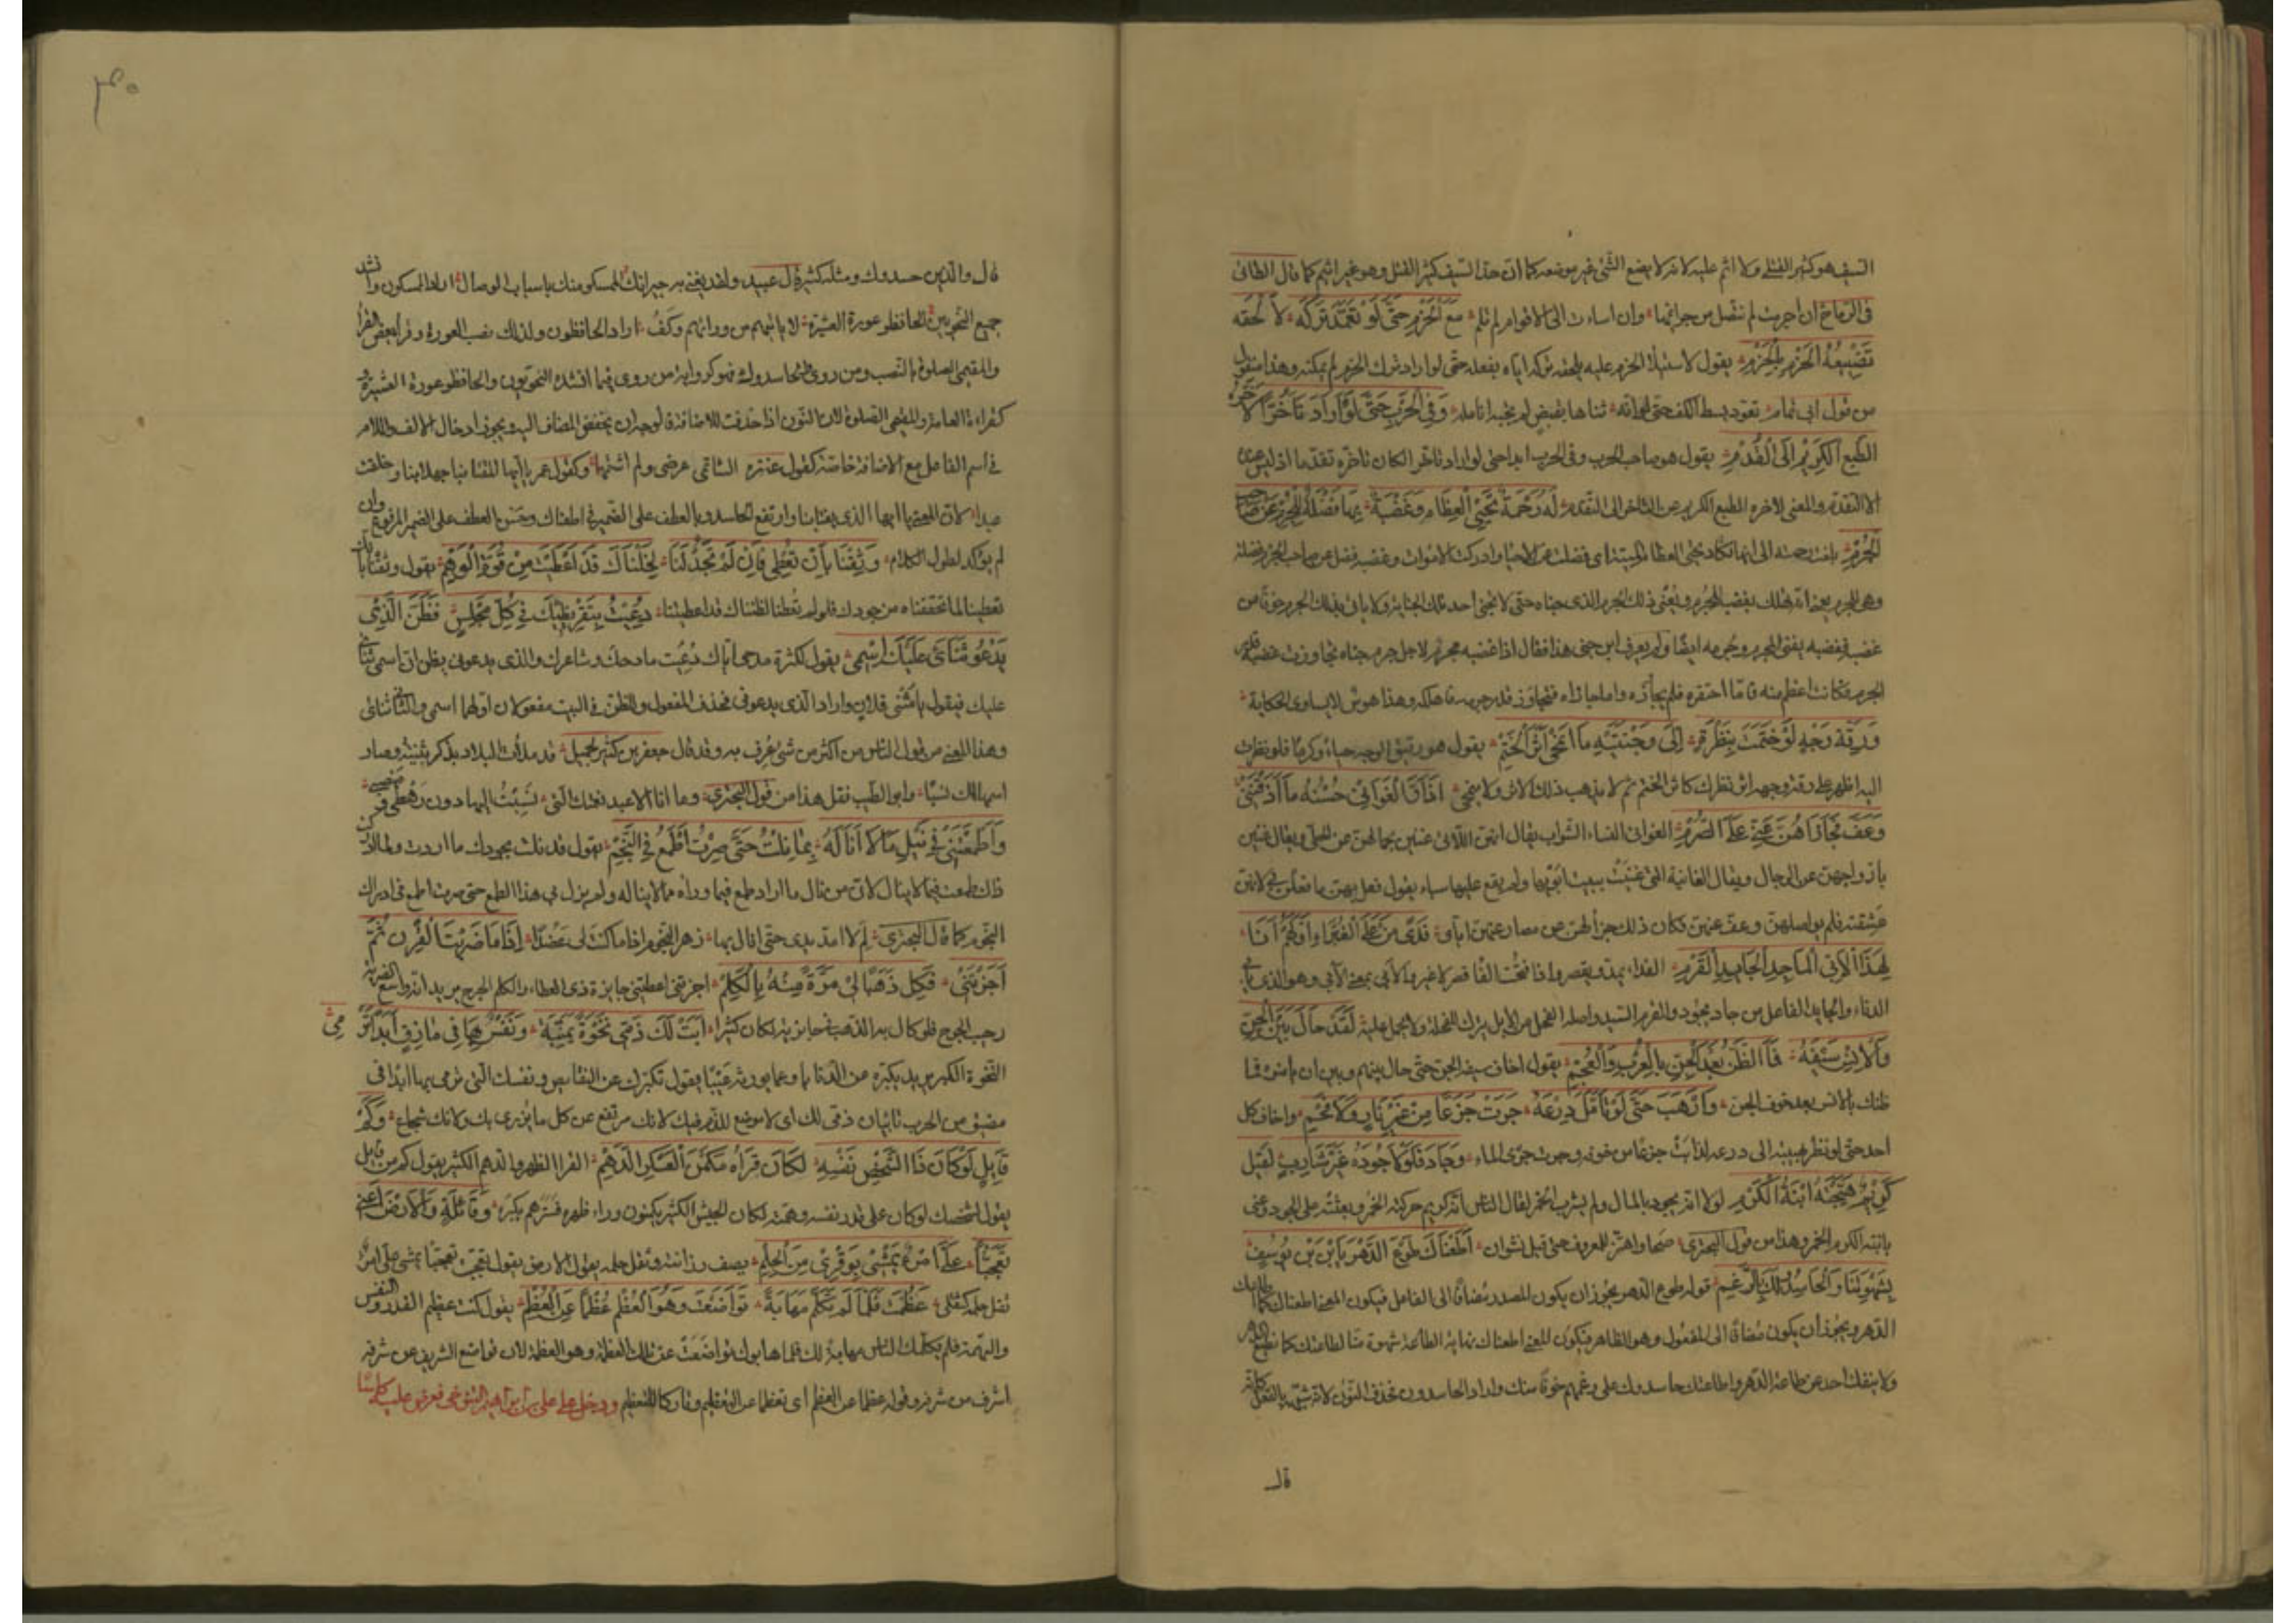 السيف هو كثير القتلى ولا اثم عليه لانه لا يضع الشئ غير موضعه كما ان حد السيف كثير القتل وهو غير اثيم كما قال الطائى
فى الرماح ان اجرمت لم تنصل من جرائمها وان اساءت الى الاقوام لم تلم مَعَ الْحَزْمِ حَتَّى لَوْ تَعَمَّدَ تَرْكَهُ لَأَلْحَقَهُ
تَضْيِيعُهُ الْحَزْمَ بِالْحَزْمِ يقول لاستيلاء الحزم عليه يلحقه تركه اياه بفعله حتى لو اراد ترك الحزم لم يمكنه وهذا منقول
من قول ابى تمام تعود بسط الكف حتى لو انه ثناها لقبض لم تجبه انامله وَفِى الْحَرْبِ حَتَّى لَوْ أَرَادَ تَأَخُّرًا لَأَخَّرَهُ
الطَّبْعُ الْكَرِيْمُ إِلَى الْقُدْمِ يقول هو صاحب الحرب وفى الحرب ابدا حتى لو اراد تاخرا لكان تاخره تقدما اذ ليس عنده
الا التقدم والمعنى لاخره الطبع الكريم عن التاخر الى التقدم لَهُ رَحْمَةٌ تُحْيِى الْعِظَامَ وَغَضْبَةٌ بِهَا فَضْلَةٌ لِلْجُرْمِ عَنْ صَاحِبِ
الْجُرْمِ بلغت رحمته الى انها تكاد تحيى العظام الميتة اى فضلت عن الاحياء وادركت الاموات وغضبه فضل عن صاحب الجرم فضلة
وهى للجرم يعنى انه يهلك بغضبه المجرم ويفنى ذلك الجرم الذى جناه حتى لا يجنى احد تلك الجناية ولا ياتى بذلك الجرم خوفا من
غضبه فغضبه يفنى المجرم وجرمه ايضا ولم يعرف ابن جنى هذا فقال اذا غضبه مجرم لاجل جرم جناه تجاوزت غضبته قدر
الجرم فكانت اعظم منه فاما احتقره فلم يجازه واما جازاه فتجاوز قدر جرمه فاهلكه وهذا هوس لا يساوى الحكاية
وَرِقَّةُ وَجْهٍ لَوْ خَتَمْتَ بِنَظْرَةٍ إِلَى وَجْنَتَيْهِ مَا انْمَحَى أَثَرُ الْخَتْمِ يقول هو رقيق الوجه حياء وكرما فلو نظرت
اليه اظهر على رقة وجهه اثر نظرك كاثر الختم ثم لا يذهب ذلك الاثر ولا ينمحى أَذَاقَ الْغَوَانِى حُسْنُهُ مَا أَذَقْنَنِى
وَعَفَّ فَجَازَاهُنَّ عَنِّى عَلَى الصُّرْمِ الغوانى النساء الشواب يقال انهن اللائى غنين بجمالهن عن الحلى ويقال غنين
بازواجهن عن الرجال ويقال الغانية التى غنيت ببيت ابويها ولم يقع عليها سباء يقول فعل بهن ما فعلن بى لانهن
عشقنه فلم يواصلهن وعف عنهن فكان ذلك جزاء لهن من مصارمتهن اياى فِدًى مَنْ عَلَى الْغَبْرَاءِ أَوَّلُهُمْ أَنَا
لِهَذَا الْأَبِىِّ الْمَاجِدِ الْجَائِدِ الْقَرْمِ الفداء يمد ويقصر واذا فتحت الفاء قصر لا غير والابى بمعنى الآبى وهو الذى يابى
الدناءة والجايد الفاعل من جاد يجود والقرم السيد واصله الفحل من الابل يترك للفحلة ولا يحمل عليه لَقَدْ حَالَ بَيْنَ الْجِنِّ
وَالْإِنْسِ سَيْفُهُ فَمَا الظَّنُّ بَعْدَ الْجِنِّ بِالْعُرْبِ وَالْعُجْمِ يقول اخاف سيفه الجن حتى حال بينهم وبين ان يامنوا فما
ظنك بالانس بعد خوف الجن وَأَرْهَبَ حَتَّى لَوْ تَأَمَّلَ دِرْعَهُ جَرَتْ جَزَعًا مِنْ غَيْرِ نَارٍ وَلَا فَحْمِ واخاف كل
احد حتى لو نظر بهيبته الى درعه لذابت جزعا من خوفه وجرت جرى الماء وَجَادَ فَلَوْلَا جُوْدُهُ غَيْرَ شَارِبٍ لَقِيْلَ
كَرِيْمٌ هَيَّجَتْهُ ابْنَةُ الْكَرْمِ لولا انه يجود بالمال ولم يشرب الخمر لقال الناس انه كريم حركته الخمر وبعثته على الجود وعنى
بابنة الكرم الخمر وهذا من قول البحترى صحا واهتز للمعروف حتى قيل نشوان أَطَعْنَاكَ طَوْعَ الدَّهْرِ يَا ابْنَ ابْنِ يُوسُفٍ
بِشَهْوَتِنَا وَالْحَاسِدُو لَكَ بِالرَّغْمِ قوله طوع الدهر يجوز ان يكون المصدر مضافا الى الفاعل فيكون المعنى اطعناك كما اطاعك
الدهر ويجوز ان يكون مضافا الى المفعول وهو الظاهر فيكون المعنى اطعناك نهاية الطاعة شهوة منا لطاعتك كما نطيع الدهر
ولا ينفك احد من طاعة الدهر واطاعتك حاسدوك على رغمهم خوفا منك واراد الحاسدون فحذف النون لانه شبهه بالفعل كانه
قال
قال والذين حسدوك ومثله كثير قال عبيد ولقد يغنى به جيرانك الممسكو منك باسباب الوصال اراد الممسكون وانشد
جميع النحويين الحافظو عورة العشيرة لا ياتيهم من ورائهم وكف اراد الحافظون ولذلك نصب العورة وقرا بعض القراء
والمقيمى الصلوة بالنصب ومن روى فالحاسدوك فهو كرواية من روى فيما انشده النحويون والحافظو عورة العشيرة و
كقراءة العامة والمقيمى الصلوة لان النون اذا حذفت للاضافة لوجب ان يخفض المضاف اليه ويجوز ادخال الالف واللام
فى اسم الفاعل مع الاضافة خاصة كقول عنتره الشاتمى عرضى ولم اشتمهما وكقول عمر يا ايها
لم يؤكد لطول الكلام وَثِقْنَا بِأَنْ تُعْطِى فَإِنْ لَمْ تَجُدْ لَنَا لَخِلْنَاكَ قَدْ أَعْطَيْتَ مِنْ قُوَّةِ الْوَهْمِ يقول وثقنا بان
تعطينا لما تحققناه من جودك فلو لم تعطنا لظنناك قد اعطيتنا دُعِيْتُ بِتَقْرِيْظِيْكَ فِى كُلِّ مَجْلِسٍ فَظَنَّ الَّذِى
يَدْعُو ثَنَائِى عَلَيْكَ اسْمِى يقول لكثرة مدحى اياك دعيت مادحك وشاعرك والذى يدعونى يظن ان اسمى ثنائى
عليك فيقول يا مثنى فلان واراد الذى يدعونى فحذف المفعول والظن فى البيت مفعولان اولهما اسمى والثانى ثنائى
وهذا المعنى من قول الناس من اكثر من شئ عرف به وقد قال جعفر بن كثير لجميل قد ملأت البلاد بذكر بثينة وصار
اسمها لك نسبا وابو الطيب نقل هذا من قول البحترى وما انا الا عبد نعمتك التى نسبت اليها دون رهطى ومنصبى
وَأَطْمَعْتَنِى فِى نَيْلِ مَا لَا أَنَالُهُ بِمَا نِلْتُ حَتَّى صِرْتُ أَطْمَعُ فِى النَّجْمِ يقول قد نلت بجودك ما اردت ولما ادركت
ذلك طمعت فيما لا ينال لان من نال ما اراد طمع فيما وراه مما لا يناله ولم يزل بى هذا الطمع حتى صرت اطمع فى ادراك
النجوم كما قال البحترى لم لا امد يدى حتى انال بها زهر النجوم اذا ما كنت لى عضدا إِذَا مَا ضَرَبْتَ الْقِرْنَ ثُمَّ
أَجَزْتَنِى فَكِلْ ذَهَبًا لِى مَرَّةً مِنْهُ بِالْكَلْمِ اجزتنى اعطيتنى جايزة ذى العطاء والكلم الجرح يريد انه واسع الضربة
رحب الجرح فلو كال به الذهب فى جايزته لكان كثيرا أَبَتْ لَكَ ذَمِّى نَخْوَةٌ يَمَنِيَّةٌ وَنَفْسٌ بِهَا فِى مَازِقٍ أَبَدًا تَرْمِى
النخوة الكبر يريد تكبره عن الدنايا وعما يورث عيبا يقول تكبرك عن النقائص ونفسك التى ترمى بها ابدا فى
مضيق من الحرب تابيان ذمى لك اى لا موضع للذم فيك لانك مرتفع عن كل ما يزرى بك ولانك شجاع وَكَمْ
قَائِلٍ لَوْ كَانَ ذَا الشَّخْصُ نَفْسَهُ لَكَانَ قَرَاهُ مَكْمَنَ الْعَسْكَرِ الدَّهْمِ القرا الظهر والدهم الكثير يقول كم من قايل
يقول لو شخصك لو كان على قدر نفسه وهمته لكان الجيش الكثير يكمنون وراء ظهره فسترهم بكبره وَقَائِلَةٍ وَالْأَرْضَ أَعْنِى
تَعَجُّبًا عَلَىَّ امْرُؤٌ يَمْشِى بِوَقْرِى مِنَ الْحِلْمِ يصف رزانته وثقل حلمه يقول الارض تقول تعجبت تعجبا يمشى على امرؤ
ثقل حلمه كثقلى عَظُمْتَ فَلَمَّا لَمْ تُكَلَّمْ مَهَابَةً تَوَاضَعْتَ وَهُوَ الْعُظْمُ عُظْمًا عَنِ الْعُظْمِ يقول كنت عظيم القدر والنفس
والهمة فلم يكلمك الناس مهابة لك فلما هابوك تواضعت عن تلك العظمة وهو العظمة لان تواضع الشريف عن شرفه
اشرف من شرفه وقوله عظما عن العظم اى تعظما عن التعظيم وتاركا للتعظيم ودخل على على بن ابراهيم التنوخى فعرض عليه كاسا